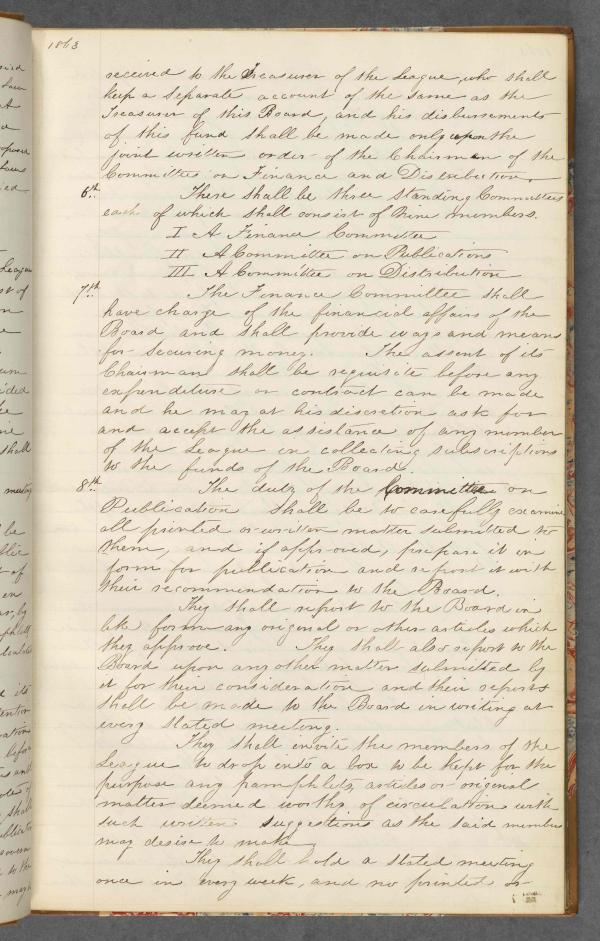 1863
received to the Treasurer of the League, who shall
keep a separate account of the same as the
Treasurer of this Board, and his disbursements
of this fund shall be made only upon the
joint written order of the Chairman of the
Committees on Finance and Distribution.
6th. There shall be three Standing Committees
each of which shall consist of Nine members.
I A Finance Committee
II A Committee on Publications
III A Committee on Distribution
7th. The Finance Committee shall
have charge of the financial affairs of the
Board and shall provide ways and means
for securing money. The assent of its
Chairman shall be requisite before any
expenditure or contract can be made
and he may at his discretion ask for
and accept the assistance of any member
of the League in collecting subscriptions
to the funds of the Board.
8th. The duty of the Committee on
Publication shall be to carefully examine
all printed or written matter submitted to
them, and if approved, prepare it in
form for publication and report it with
their recommendation to the Board.
They shall report to the Board in
like form any original or other articles which
they approve. They shall also report to the
Board upon any other matter submitted by
it for their consideration and their reports
shall be made to the Board in writing at
every stated meeting.
They shall invite the members of the
League to drop into a box to be kept for the
purpose any pamphlets, articles or original
matter deemed worthy of circulation with
such written suggestions as the said members
may desire to make.
They shall hold a stated meeting
once in every week, and no printed or